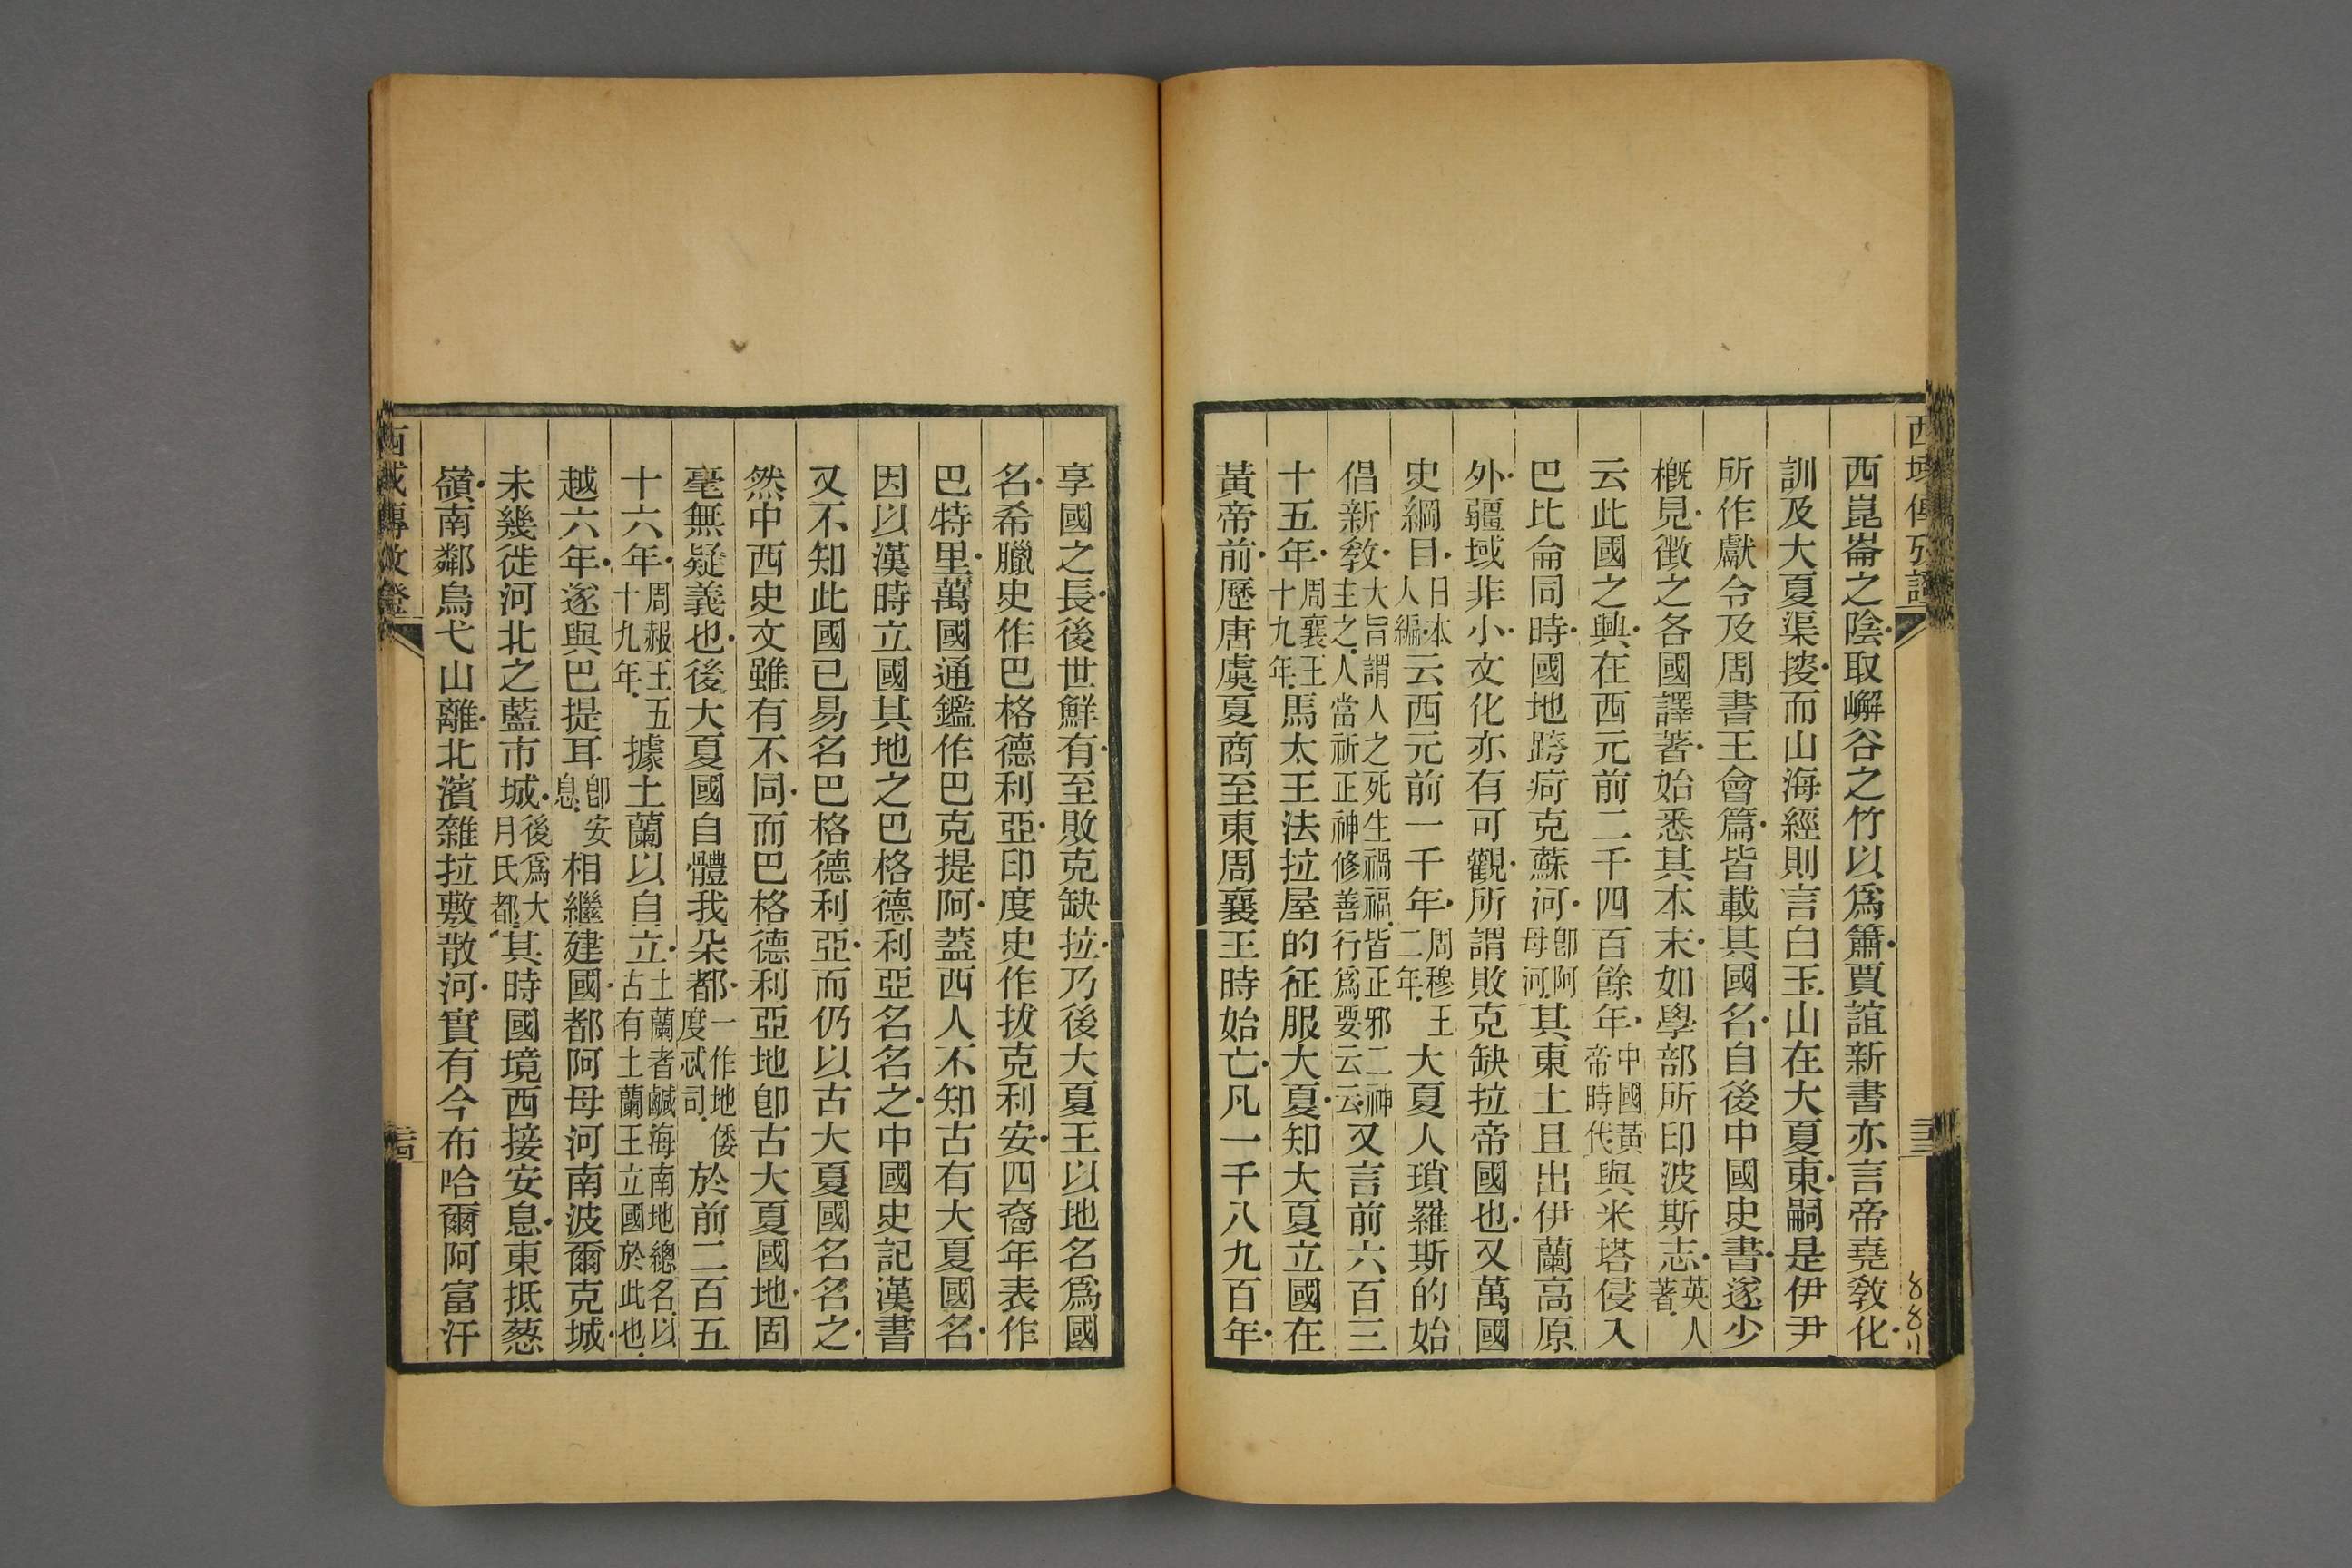 西域傳攷證
二十三
8811
西崑崙之陰取嶰谷之竹以爲簫賈誼新書亦言帝堯敎化
訓及大夏渠捘而山海經則言白玉山在大夏東嗣是伊尹
所作獻令及周書王會篇皆載其國名自後中國史書遂少
槪見徵之各國譯著始悉其本末如學部所印波斯志英人著
云此國之興在西元前二千四百餘年中國黃帝時代與米塔侵入
巴比侖同時國地跨疴克蘇河卽阿母河其東土且出伊蘭高原
外疆域非小文化亦有可觀所謂敗克缺拉帝國也又萬國
史綱目日本人編云西元前一千年周穆王二年大夏人瑣羅斯的始
倡新敎大旨謂人之死生禍福皆正邪二神主之人當祈正神修善行爲要云云又言前六百三
十五年周襄王十九年馬太王法拉屋的征服大夏知大夏立國在
黃帝前歷唐虞夏商至東周襄王時始亡凡一千八九百年
享國之長後世鮮有至敗克缺拉乃後大夏王以地名爲國
名希臘史作巴格德利亞印度史作拔克利安四裔年表作
巴特里萬國通鑑作巴克提阿蓋西人不知古有大夏國名
因以漢時立國其地之巴格德利亞名名之中國史記漢書
又不知此國已易名巴格德利亞而仍以古大夏國名名之
然中西史文雖有不同而巴格德利亞地卽古大夏國地固
毫無疑義也後大夏國自體我朵都一作地倭度忒司於前二百五
十六年周赧王五十九年據土蘭以自立土蘭者鹹海南地總名以古有土蘭王立國於此也
越六年遂與巴提耳卽安息相繼建國都阿母河南波爾克城
未幾徙河北之藍市城後爲大月氏都其時國境西接安息東抵葱
嶺南鄰烏弋山離北濱雜拉敷散河實有今布哈爾阿富汗
西域傳攷證
二十四